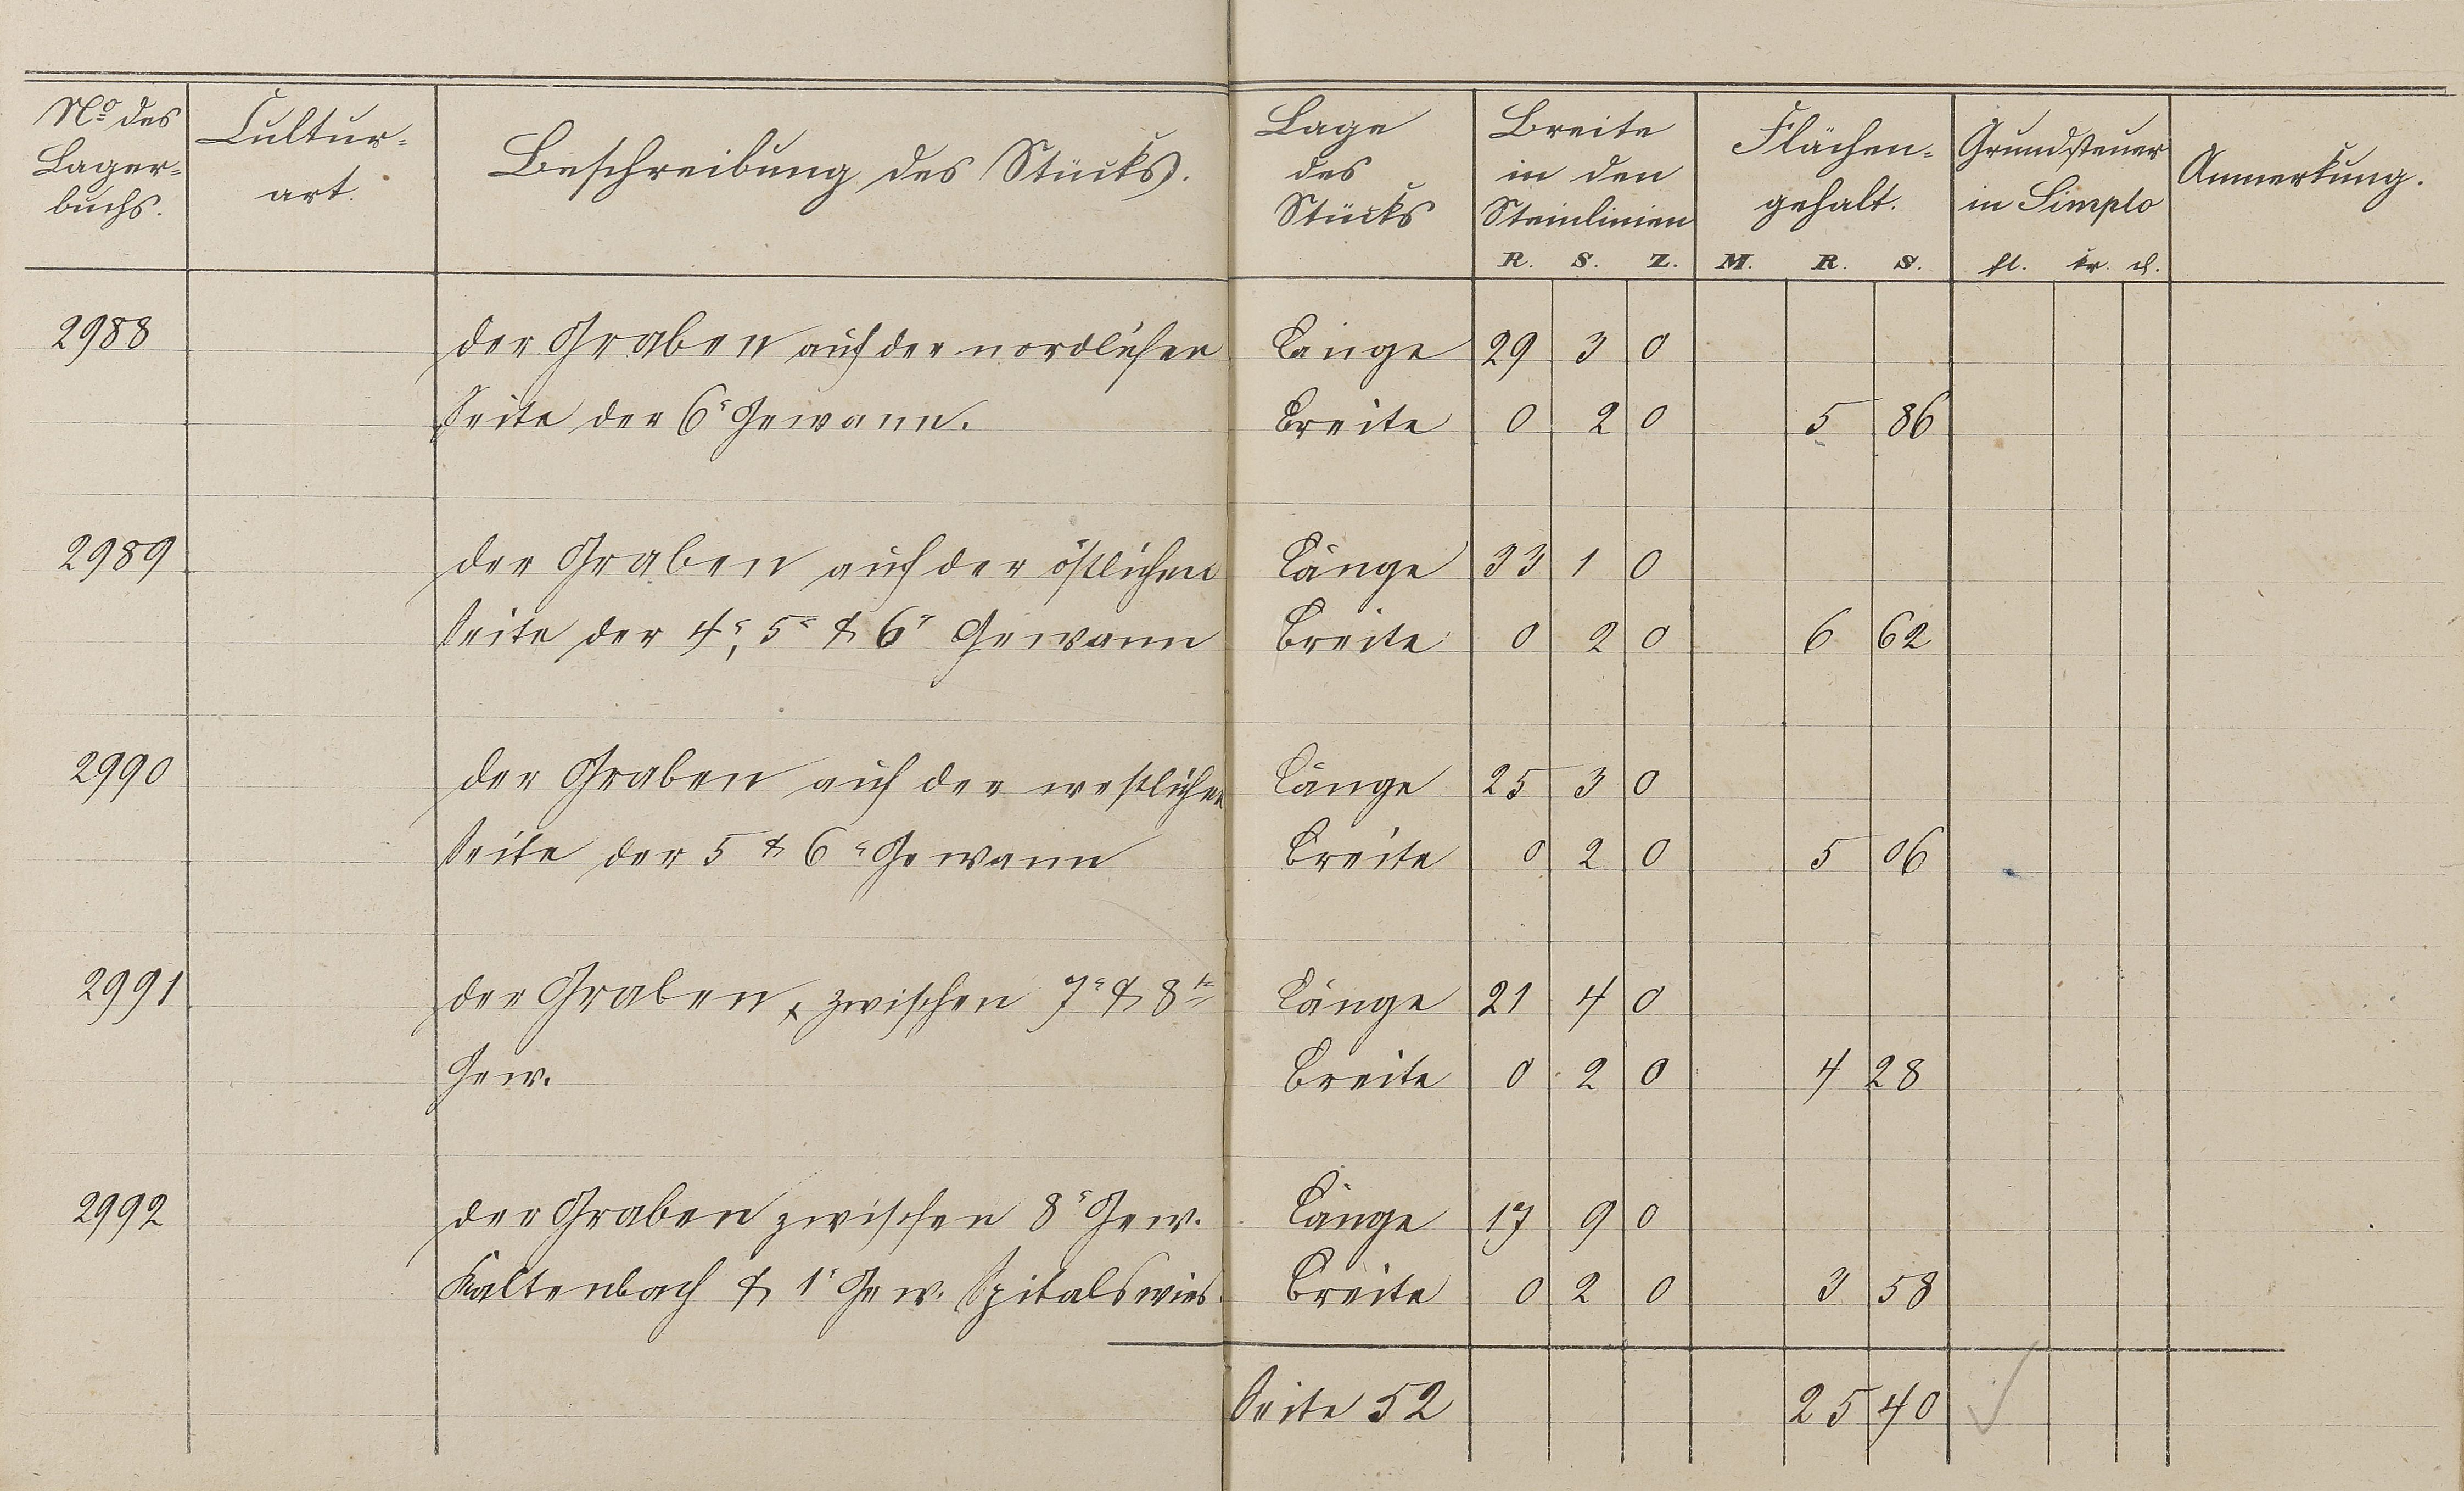 No des Lagerbuchs.
Culturart.
Beschreibung des Stücks.
Lage des Stücks
Breite in den Steinlinien
Flächengehalt.
Grundsteuer in Simplo
Anmerkung.
R. S. Z. M. R. S. fl. kr. d.
2988 der Graben auf der nordlichen Länge 29 3 0
Seite der 6r Gewann. Breite 0 2 0 5 86
2989 der Graben auf der östlichen Länge 33 1 0
Seite der 4r, 5r & 6r Gewann Breite 0 2 0 6 62
2990 der Graben auf der westlichen Länge 25 3 0
Seite der 5 & 6r Gewann Breite 0 2 0 5 06
2991 der Graben zwischen 7r & 8te Länge 21 4 0
Gew. Breite 0 2 0 4 28
2992 der Graben zwischen 8r Gew. Länge 17 9 0
Kaltenbach & 1r Gew. Spitalswies Breite 0 2 0 3 58
Seite 52 25 40